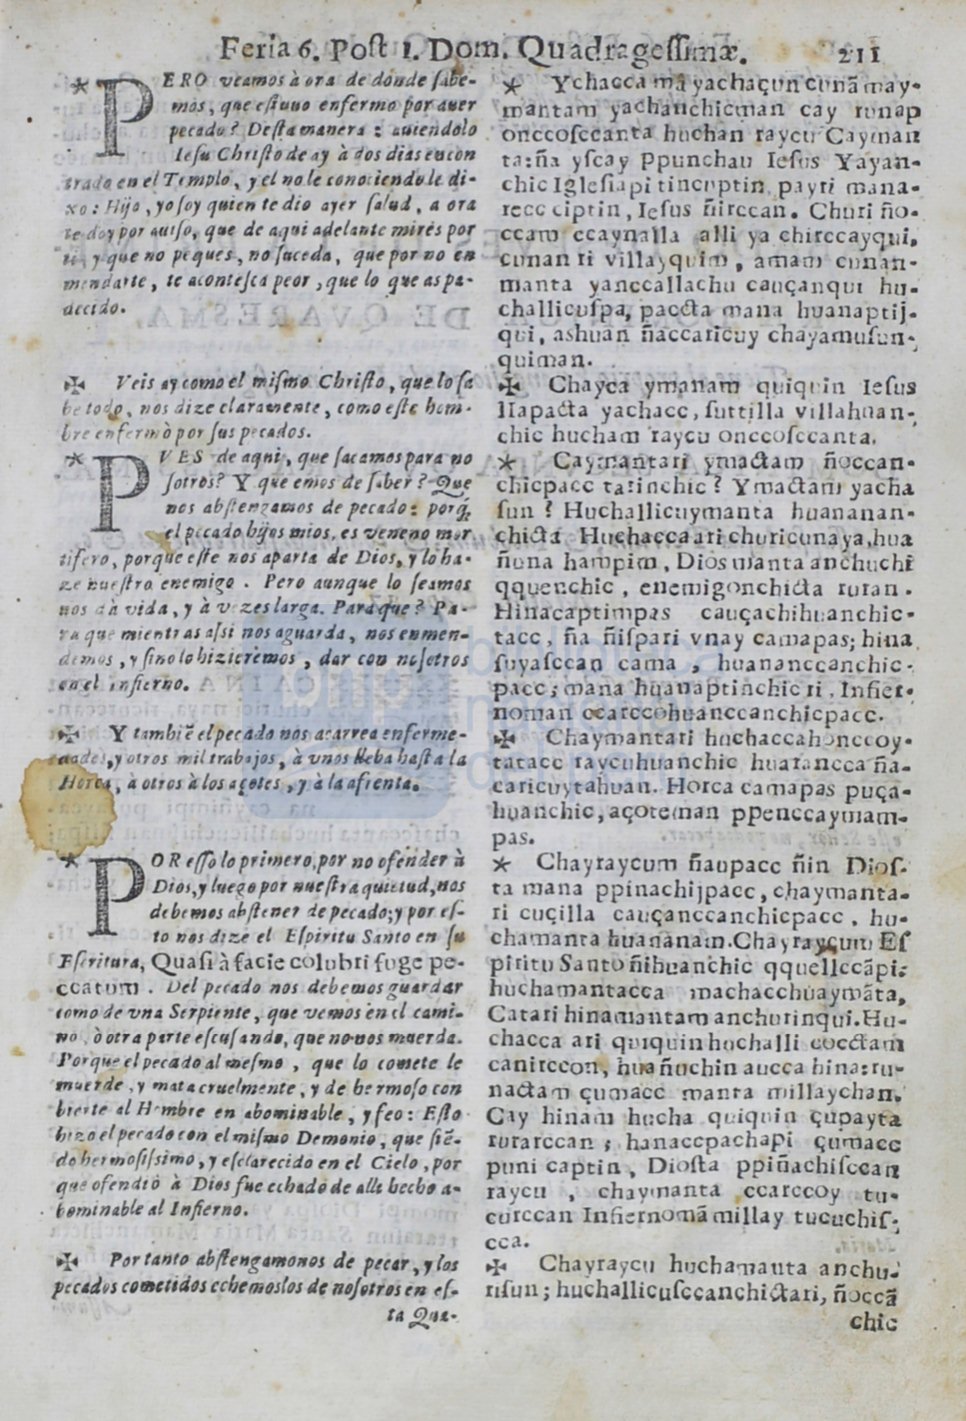 Feria 6. Post 1. Dom. Quadragessimæ. 211
* PERO veamos à ora de dõnde sabe-
mos, que estuuo enfermo por auer
pecado? Desta manera: auiendolo
Iesu Christo de ay à dos dias encon
trado en el Templo, y el no le conociendole di-
xo: Hijo, yo soy quien te dio ayer salud, a ora
te doy por auiso, que de aqui adelante mires por
ti, y que no peques, no suceda, que por no en
mendarte, te acontesca peor, que lo que as pa-
decido.
✠ Veis ay como el mismo Christo, que lo sa
be todo, nos dize claramente, como este hom-
bre enfermò por sus pecados.
* PVES de aqui, que sacamos para no
sotros? Y que emos de saber? Que
nos abstengamos de pecado: porq̃,
el pecado hijos mios, es veneno mor
tifero, porque este nos aparta de Dios, y lo ha-
ze nuestro enemigo. Pero aunque lo seamos
nos dà vida, y à vezes larga. Para que? Pa-
ra que mientras assi nos aguarda, nos enmen-
demos, y sino lo hizieremos, dar con nosotros
en el infierno.
✠ Y tambiẽ el pecado nos acarrea enferme-
dades, y otros mil trabajos, à vnos lleba hasta la
Horca, à otros à los açotes, y à la afrenta.
* POR esso lo primero, por no ofender à
Dios, y luego por nuestra quietud, nos
debemos abstener de pecado; y por es-
to nos dize el Espiritu Santo en su
Escritura, Quasi à facie colubri fuge pe-
ccatum. Del pecado nos debemos guardar
como de vna Serpiente, que vemos en el cami-
no, ò otra parte escusando, que no nos muerda.
Porque el pecado al mesmo, que lo comete le
muerde, y mata cruelmente, y de hermoso con
bierte al Hombre en abominable, y feo: Esto
hizo el pecado con el mismo Demonio, que siẽ-
do hermosissimo, y esclarecido en el Cielo, por
que ofendiò à Dios fue echado de alli hecho a-
bominable al Infierno.
✠ Por tanto abstengamonos de pecar, y los
pecados cometidos echemoslos de nosotros en es-
ta Qua-
* Ychacca mã yachaçun cunã may-
mantam yachanchicman cay runap
onccosccanta huchan raycu Cayman
ta:ña yscay ppunchau Iesus Yayan-
chic Iglesiapi tincuptin, payri mana-
recc ciptin, Iesus ñirccan. Churi ño-
ccam ccaynalla alli ya chirccayqui,
cunan ri villayquim, amam cunan-
manta yanccallachu cauçanqui hu-
challicuspa, paccta mana huanaptij-
qui, ashuan ñaccaricuy chayamusun-
quiman.
✠ Chayca ymanam quiquin Iesus
llapacta yachacc, suttilla villahuan-
chic hucham raycu onccosccanta.
* Caymantari ymactam ñoccan-
chicpacc tarinchic? Ymactam yacha
sun? Huchallicuymanta huananan-
chicta Huchacca ari churicunaya, hua
ñuna hampim, Dios manta anchuchi
qquenchic, enemigonchicta ruran.
Hinacaptimpas cauçachihuanchic-
tacc, ña ñispari vnay camapas; hina
suyasccan cama, huananccanchic-
pacc; mana huanaptinchic ri, Infier-
noman ccarccohuanccanchicpacc.
✠ Chaymantari huchaccahonccoy-
tatacc raycuhuanchic huarancca ña-
caricuytahuan. Horca camapas puça-
huanchic, açoteman ppenccaymam-
pas.
* Chayraycum ñaupacc ñin Dios-
ta mana ppinachijpacc, chaymanta-
ri cucilla cauçanccanchicpacc, hu-
chamanta huananam. Chayraycum Es
piritu Santo ñihuanchic qquellccãpi:
huchamantacca machacchuaymãta,
Catari hinamantam anchurinqui. Hu-
chacca ari quiquin huchalli cocctam
canirccon, huañuchin aucca hina: ru-
nactam çumacc manta millaychan.
Cay hinam hucha quiquin çupayta
rurarccan; hanaccpachapi çumacc
puni captin, Diosta ppiñachisccan
raycu, chaymanta ccarccoy tu-
curccan Infiernomã millay tucuchis-
cca.
✠ Chayraycu huchamanta anchu-
risun; huchallicusccanchictari, ñoccã
chic